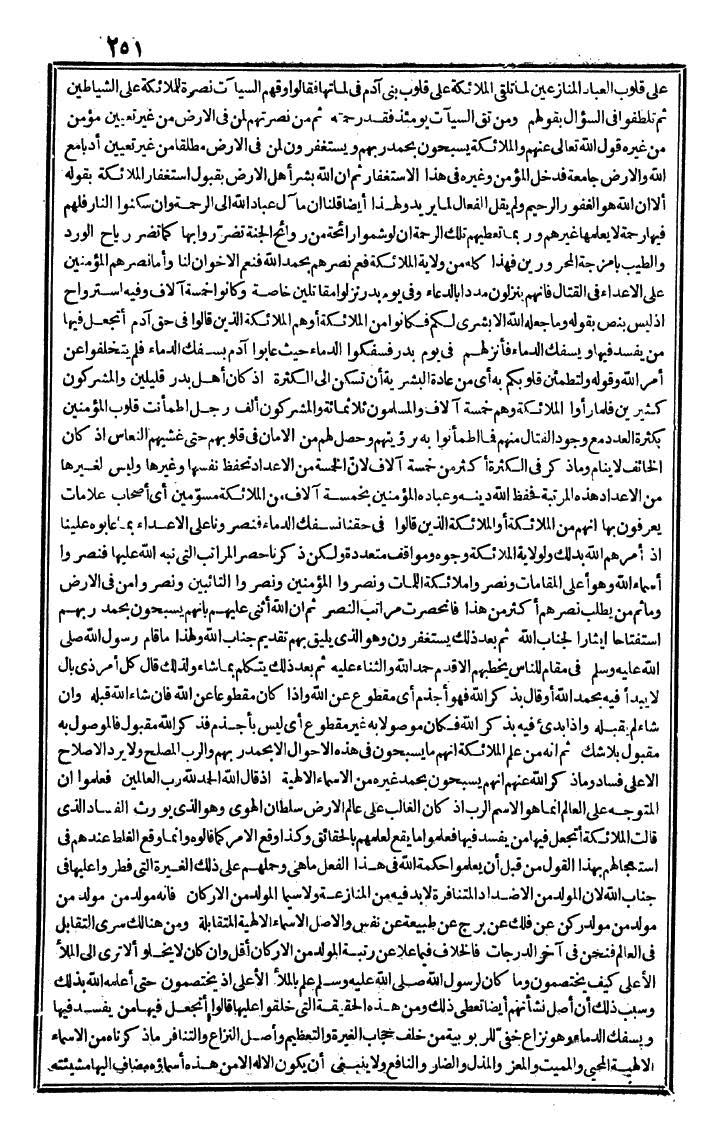 ٢٥١
على قلوب العباد المنازعين لما تلقى الملائكة على قلوب بنى آدم فى لماتها فقالوا وقهم السيآت نصرة للملائكة على الشياطين
ثم تلطفوا فى السؤال بقولهم ومن تق السيآت يومئذ فقد رحمته ثم من نصرتهم لمن فى الارض من غير تعيين مؤمن
من غيره قول الله تعالى عنهم والملائكة يسبحون بحمد ربهم ويستغفرون لمن فى الارض مطلقا من غير تعيين أدبا مع
الله والارض جامعة فدخل المؤمن وغيره فى هذا الاستغفار ثم ان الله بشر أهل الارض بقبول استغفار الملائكة بقوله
ألا ان الله هو الغفور الرحيم ولم يقل الفعال لما يريد ولهذا أيضا قلنا ان ما آل عباد الله الى الرحمة وان سكنوا النار فلهم
فيها رحمة لا يعلمها غيرهم وربما تعطيهم تلك الرحمة ان لو شموا رائحة من روائح الجنة تضرّروا بها كما تضر رياح الورد
والطيب بأمزجة المحرورين فهذا كله من ولاية الملائكة فعم نصرهم بحمد الله فنعم الاخوان لنا وأما نصرهم المؤمنين
على الاعداء فى القتال فانهم ينزلون مددا بالدعاء وفى يوم بدر نزلوا مقاتلين خاصة وكانوا خمسة آلاف وفيه استرواح
اذ ليس بنص بقوله وما جعله الله الا بشرى لكم فكانوا من الملائكة أو هم الملائكة الذين قالوا فى حق آدم أتجعل فيها
من يفسد فيها ويسفك الدماء فأنزلهم فى يوم بدر فسفكوا الدماء حيث عابوا آدم بسفك الدماء فلم يتخلفوا عن
أمر الله وقوله ولتطمئن قلوبكم به أى من عادة البشرية أن تسكن الى الكثرة اذ كان أهل بدر قليلين والمشركون
كثيرين فلما رأوا الملائكة وهم خمسة آلاف والمسلمون ثلاثمائة والمشركون ألف رجل اطمأنت قلوب المؤمنين
بكثرة العدد مع وجود القتال منهم فما اطمأنوا به برؤيتهم وحصل لهم من الامان فى قلوبهم حتى غشيهم النعاس اذ كان
الخائف لا ينام وما ذكر فى الكثرة أكثر من خمسة آلاف لانّ الخمسة من الاعداد تحفظ نفسها وغيرها وليس لغيرها
من الاعداد هذه المرتبة فحفظ الله دينه وعباده المؤمنين بخمسة آلاف من الملائكة مسوّمين أى أصحاب علامات
يعرفون بها انهم من الملائكة أو الملائكة الذين قالوا فى حقنا نسفك الدماء فنصرونا على الاعداء بما عابوه علينا
اذ أمرهم الله بذلك ولولاية الملائكة وجوه ومواقف متعددة ولكن ذكرنا حصر المراتب التى نبه الله عليها فنصروا
أسماء الله وهو أعلى المقامات ونصروا ملائكة اللمات ونصروا المؤمنين ونصروا التائبين ونصروا من فى الارض
وما ثم من يطلب نصرهم أكثر من هذا فانحصرت مراتب النصر ثم ان الله أثنى عليهم بانهم يسبحون بحمد ربهم
استفتاحا ايثارا لجناب الله ثم بعد ذلك يستغفرون وهو الذى يليق بهم تقديم جناب الله ولهذا ما قام رسول الله صلى
الله عليه وسلم فى مقام للناس يخطبهم الا قدم حمد الله والثناء عليه ثم بعد ذلك يتكلم بما شاء ولذلك قال كل أمر ذى بال
لا يبدأ فيه بحمد الله أو قال بذكر الله فهو أجذم أى مقطوع عن الله واذا كان مقطوعا عن الله فان شاء الله قبله وان
شاء لم يقبله واذا بدئ فيه بذكر الله فكان موصولا به غير مقطوع أى ليس بأجذم فذكر الله مقبول فالموصول به
مقبول بلا شك ثم انه من علم الملائكة انهم ما يسبحون فى هذه الاحوال الا بحمد ربهم والرب المصلح ولا يرد الاصلاح
الا على فساد وما ذكر الله عنهم انهم يسبحون بحمد غيره من الاسماء الالهية اذ قال الله الحمد لله رب العالمين فعلموا ان
المتوجه على العالم انما هو الاسم الرب اذ كان الغالب على عالم الارض سلطان الهوى وهو الذى يورث الفساد الذى
قالت الملائكة أتجعل فيها من يفسد فيها فعلموا ما يقع لعلمهم بالحقائق وكذا وقع الامر كما قالوه وانما وقع الغلط عندهم فى
استعجالهم بهذا القول من قبل أن يعلموا حكمة الله فى هذا الفعل ماهى وحملهم على ذلك الغيرة التى فطروا عليها فى
جناب الله لان المولد من الاضداد المتنافرة لا بد فيه من المنازعة ولا سيما المولد من الاركان فانه مولد من مولد من
مولد من مولد ركن عن فلك عن برج عن طبيعة عن نفس والاصل الاسماء الالهية المتقابلة ومن هنالك سرى التقابل
فى العالم فنحن فى آخر الدرجات فالخلاف فيما علا عن رتبة المولد من الاركان أقل وان كان لا يخلو ألا ترى الى الملأ
الأعلى كيف يختصمون وما كان لرسول الله صلى الله عليه وسلم علم بالملأ الأعلى اذ يختصمون حتى أعلمه الله بذلك
وسبب ذلك أن أصل نشأتهم أيضا تعطى ذلك ومن هذه الحقيقة التى خلقوا عليها قالوا أتجعل فيها من يفسد فيها
ويسفك الدماء وهو نزاع خفىّ للربوبية من خلف حجاب الغيرة والتعظيم وأصل النزاع والتنافر ما ذكرناه من الاسماء
الالهية المحيى والمميت والمعز والمذل والضار والنافع ولا ينبغى أن يكون الاله الا من هذه أسماؤه مضاف اليها مشيئته